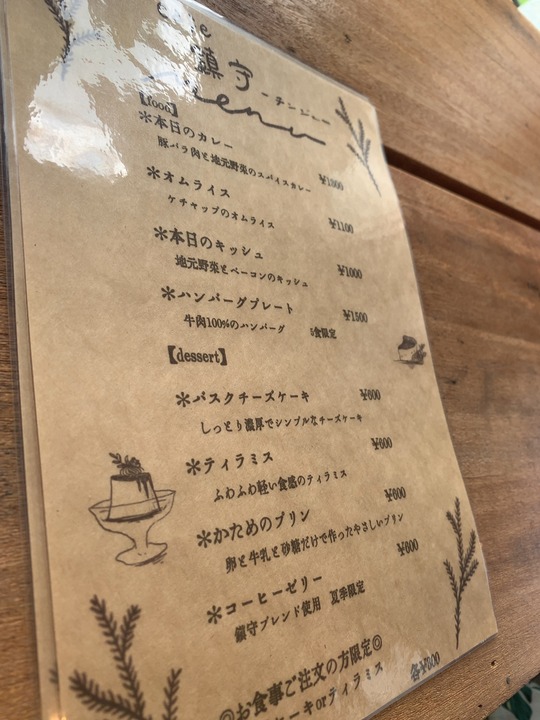 鎮守 -チンジュ-
menu
【food】
＊本日のカレー
豚バラ肉と地元野菜のスパイスカレー ¥1300
＊オムライス
ケチャップのオムライス ¥1100
＊本日のキッシュ
地元野菜とベーコンのキッシュ ¥1000
＊ハンバーグプレート
牛肉100%のハンバーグ 5食限定 ¥1500
【dessert】
＊バスクチーズケーキ ¥600
しっとり濃厚でシンプルなチーズケーキ
＊ティラミス ¥600
ふわふわ軽い食感のティラミス
＊かためのプリン ¥600
卵と牛乳と砂糖だけで作ったやさしいプリン
＊コーヒーゼリー ¥600
鎮守ブレンド使用 夏季限定
◎お食事ご注文の方限定◎
ーキorティラミス